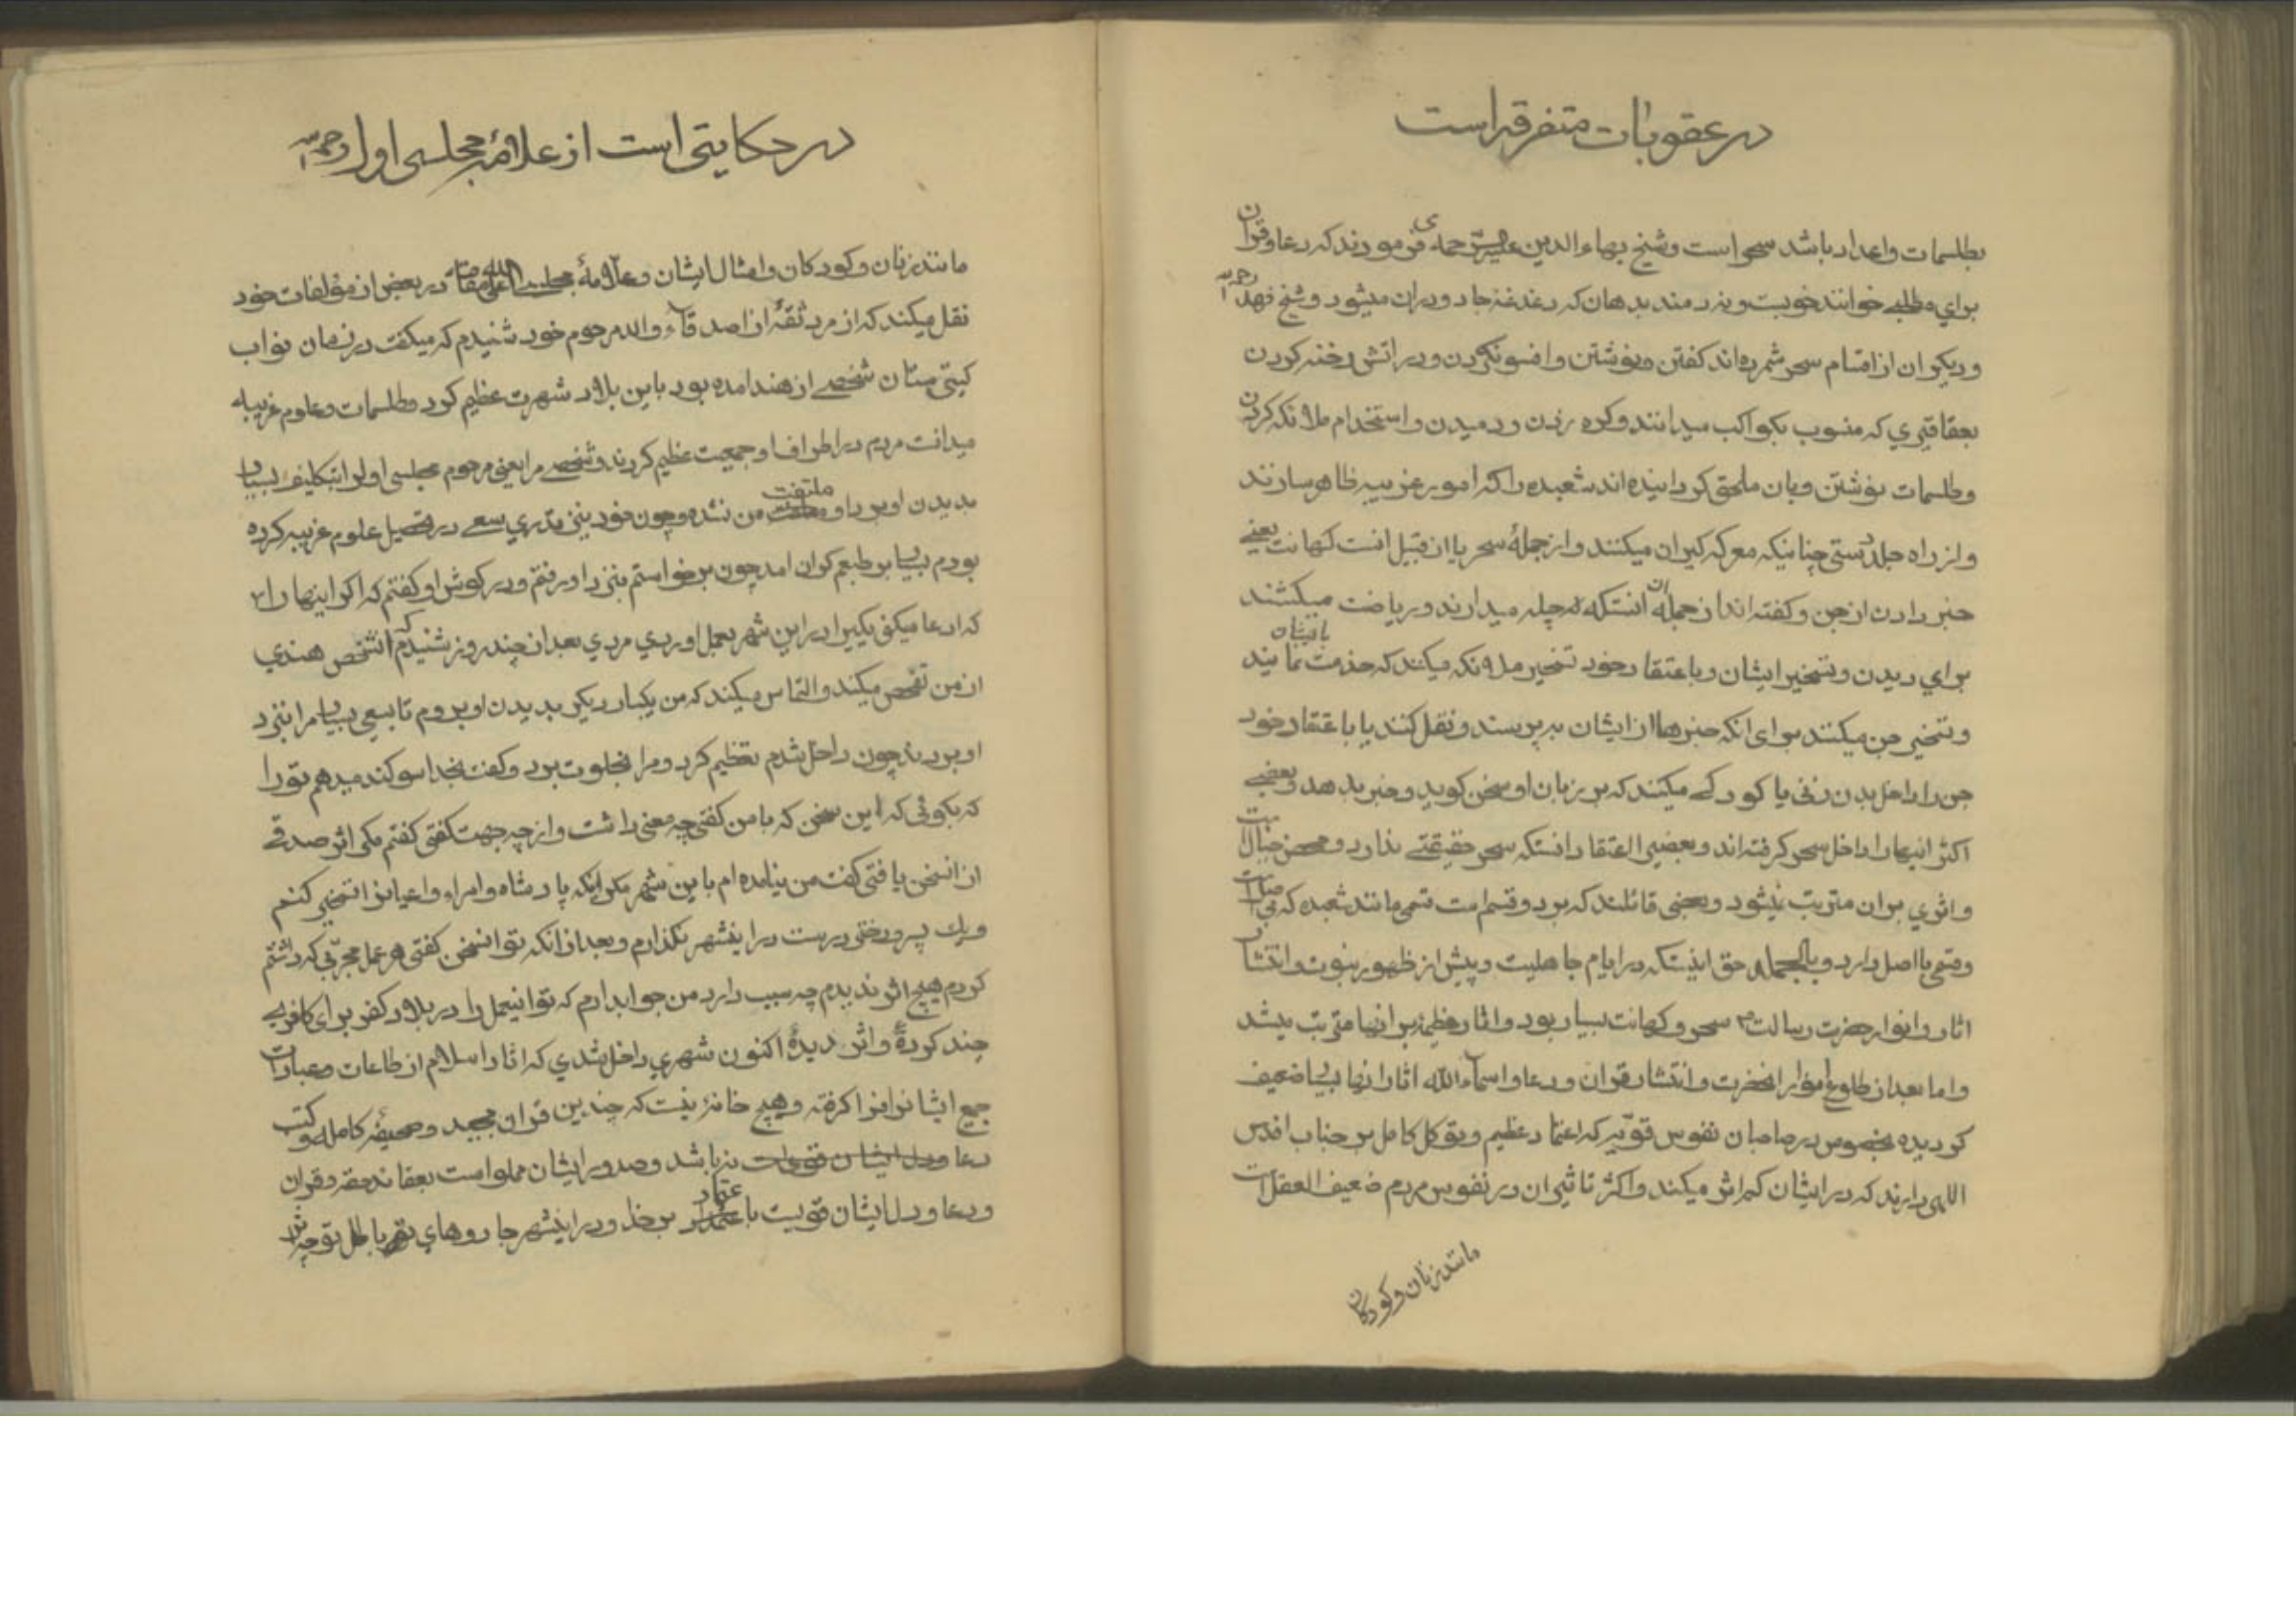 در عقوبات متفرقه است
بطلسمات واعداد باشد سحر است وشیخ بهاء الدین علیه الرحمه می فرمودند که دعا وقران
برای مطلبی خوانند خوبست وبزرمند بدهان که دغدغه جادو دران میشود وشیخ فهد رحمه
ودیگران از اقسام سحر شمرده اند کفتن ونوشتن وافسون کردن ودر اتش دخنه کردن
بعقاقیری که منسوب بکواکب میدانند وکره زدن ودمیدن واستخدام ملائکه کردن
وطلسمات نوشتن وبان ملحق کردانیده اند شعبده را که امور غریبه ظاهر سازند
واز راه جلد دستی چنانیکه معرکه کیران میکنند واز جملهٔ سحر یا از قبیل انست کهانت یعنی
خبر دادن از جن وکفته اند از جمله ان انستکه چله میدارند وریاضت میکشند
برای دیدن وتسخیر ایشان وباعتقاد خود تسخیر ملائکه میکنند که خدمت بایشان نمایند
وتسخیر جن میکنند برای انکه خبرها از ایشان بپرسند ونقل کنند یا باعتقاد خود
جن را داخل بدن زنی یا کودکی میکنند که بر زبان او سخن کوید وخبر بدهد وبعضی
اکثر اینها را داخل سحر کرفته اند وبعضی را اعتقاد انستکه سحر حقیقتی ندارد ومحض خیالاتست
واثری بران مترتب نمیشود وبعضی قائلند که بر دو قسم است قسمی مانند شعبده که بی اصل است
وقسمی با اصل دارد وبالجمله حق اینستکه در ایام جاهلیت وپیش از ظهور نبوت وانتشار
اثار وانوار حضرت رسالت ص سحر وکهانت بسیار بود واثار عظیمه بر انها مترتب میشد
واما بعد از طلوع انوار انحضرت وانتشار قران ودعا واسماء الله اثار انها بسیار ضعیف
کردیده بخصوص در صاحبان نفوس قویه که اعتماد عظیم وتوکل کامل بر جناب اقدس
اللهی دارند که در ایشان کم اثر میکند واکثر تاثیر ان در نفوس مردم ضعیف العقل است
مانند زنان وکودکان
در حکایتی است از علامهٔ مجلسی اول رحمه
مانند زنان وکودکان وامثال ایشان وعلامهٔ مجلسی اعلی الله مقامه در بعض از مؤلفات خود
نقل میکند که از مرد ثقهٔ از اصدقاء والد مرحوم خود شنیدم که میکفت در زمان نواب
کیتی ستان شخصی از هند امده بود باین بلاد شهرت عظیم کرد وطلسمات وعلوم غریبه
میدانست مردم در اطراف او جمعیت عظیم کردند وشخصی مرا یعنی مرحوم مجلسی اول را بتکلیف بسیار
بدیدن او برد او ملتفت من نشد وچون خود نیز قدری سعی در تحصیل علوم غریبه کرده
بودم بسیار بر طبعم کران امد چون برخواستم بنزد او رفتم ودر کوش او کفتم که اکر اینها را
که ادعا میکنی یکیرا در این شهر بعمل اوردی مردی بعد از چند روز شنیدم که انشخص هندی
از من تفحص میکند والتماس میکند که من یکبار دیکر بدیدن او بروم تا بسعی بسیار مرا بنزد
او بردند چون داخل شدم تعظیم کرد ومرا بخلوت برد وکفت بخدا سوکند میدهم تو را
که بکوئی که این سخن که با من کفتی چه معنی داشت واز چه جهت کفتی کفتم مکر اثر صدقی
از انسخن یافتی کفت من نیامده ام باین شهر مکر اینکه پادشاه وامراء واعیانرا تسخیر کنم
ویک پر درختی درست در اینشهر نکذارم وبعد از انکه تو انسخن کفتی هر عمل مجربی که داشتم
کردم هیچ اثر ندیدم چه سبب دارد من جواب دادم که تو اینعمل را در بلاد کفر برای کافری
چند کردهٔ واثر دیدهٔ اکنون شهری داخل شدی که اثار اسلام از طاعات وعبادات
جمیع ایشانرا فرا کرفته وهیچ خانهٔ نیست که چندین قران مجید وصحیفهٔ کامله وکتب
دعا در نباشد وصدور ایشان مملو است بعقائد حقه وقران
ودعا ودل ایشان قویست باعتماد بر خدا ودر اینشهر جادوهای تو باطل توجه